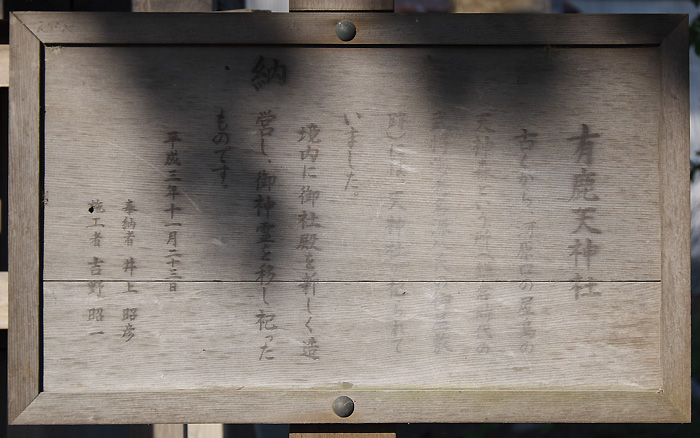 有鹿天神社
古くから、河原口の屋島の
天神森という所へ鎌倉時代の
跡)には、天神社が祀られて
いました。
境内に御社殿を新しく造
営し、御神霊を移し祀った
ものです。
納
平成三年十一月二十三日
奉納者 井上 昭彦
施工者 吉野 昭一